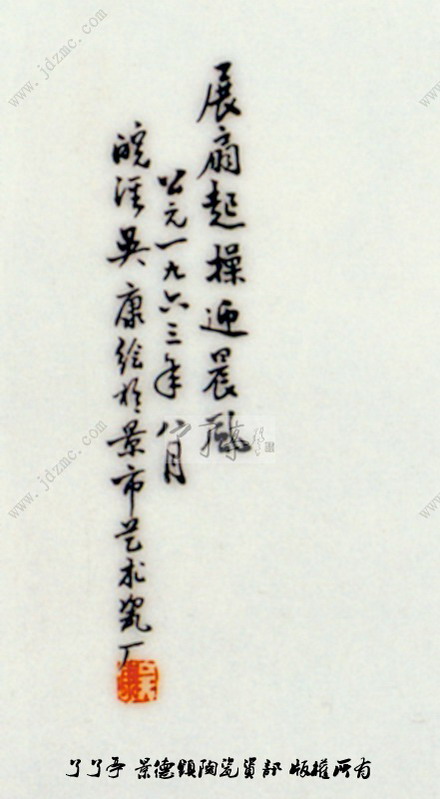 展扇起操迎晨
公元一九六三年八月
皖泾吴康绘於景市艺术瓷厂
了了亭 景德鎮陶瓷資部 版權所有
www.jdzmc.com
www.jdzmc.com
www.jdzmc.com
www.jdzmc.com